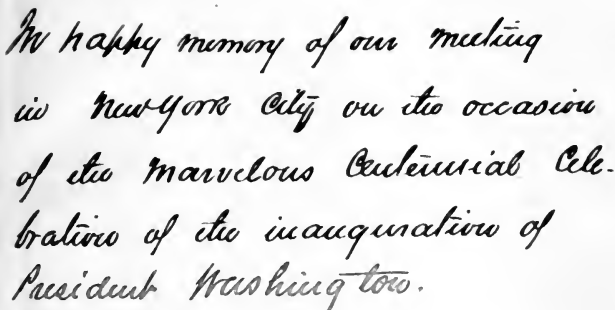 In happy memory of our meeting
in New York City on the occasion
of the Marvelous Centennial Cele-
bration of the inauguration of
President Washington.